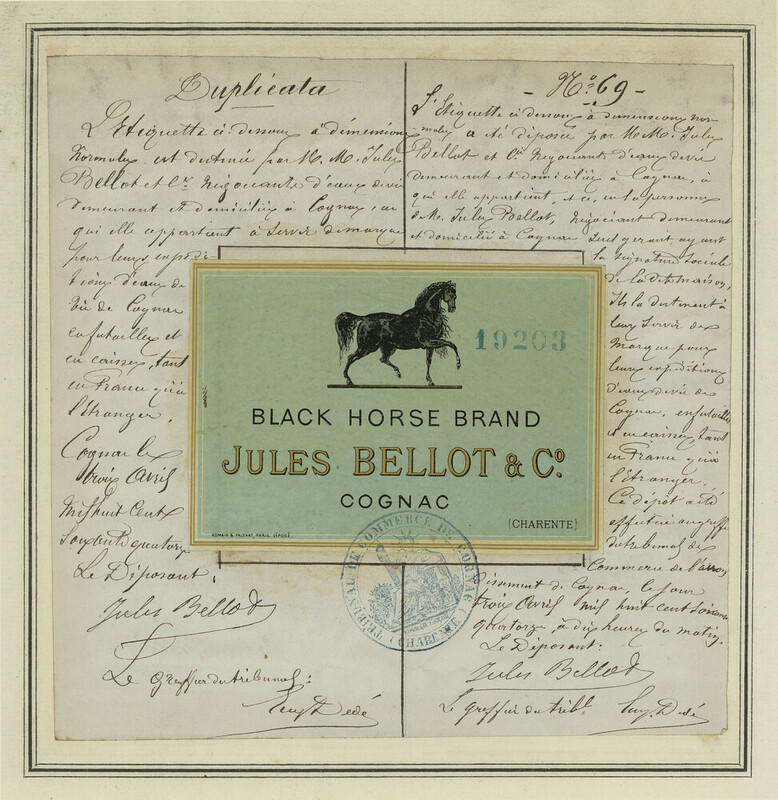 Duplicata
L'Etiquette ci-dessous à dimensions
Normales est destinée par M. M. Jules
Bellot et Cie Négociants d'eaux de vie
demeurant et domiciliés à Cognac, à
qui elle appartient à servir de marque
pour leurs expédi-
tions d'eaux de
vie de Cognac
en futailles et
en caisses, tant
en France qu'à
l'étranger.
Cognac le
trois Avril
mil huit cent
soixante quatorze
Le Déposant,
Jules Bellot
Le greffier du tribunal:
Eug. Dedé
- No. 69 -
L'Etiquette ci-dessous à dimensions nor-
males a été déposée par M. M. Jules
Bellot et Cie Négociants d'eaux de vie
demeurant et domiciliés à Cognac, à
qui elle appartient, et ce, en la personne
de M. Jules Bellot, négociant demeurant
et domicilié à Cognac seul gérant ayant
la signature sociale
de la dite maison,
Ils la destinent à
leur servir de
marque pour
leurs expéditions
d'eaux de vie de
Cognac, en futailles
et en caisses, tant
en France qu'à
l'étranger.
Ce dépôt a été
effectué au greffe
du tribunal de
Commerce de l'arron
dissement de Cognac, le jour
trois Avril mil huit cent soixante
quatorze, à dix heures du matin.
Le Déposant:
Jules Bellot
Le greffier du tribl. Eug. Dedé
19203
BLACK HORSE BRAND
JULES BELLOT & Co.
COGNAC
(CHARENTE)
ROMAIN & PALYART, PARIS. DÉPOSÉ.
TRIBUNAL DE COMMERCE DE COGNAC
(CHARENTE)